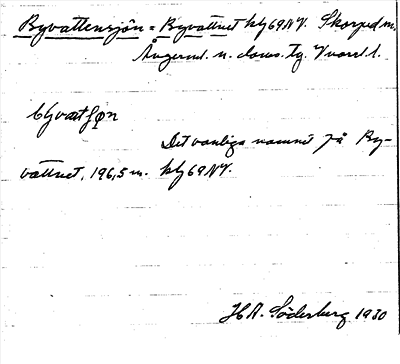 Byvattensjön = Byvattnet blg 69 NV. Skorped sn.
Ångerml. n. doms. tg. V norrl. l.
byvatsjøn
Det vanliga namnet på By-
vattnet, 196,5 m. blg 69 NV.
H.A. Söderberg 1930